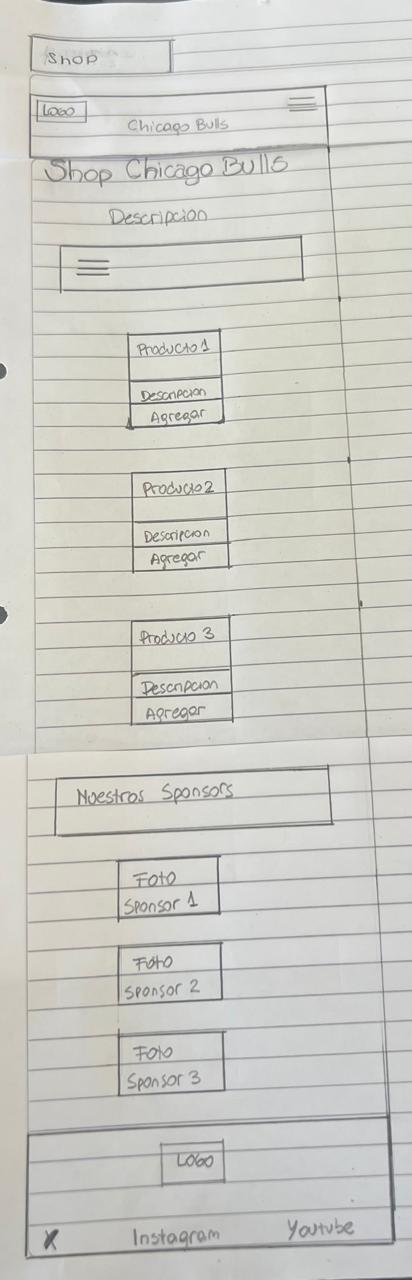 Shop
LOGO
Chicago Bulls
Shop Chicago Bulls
Descripcion
Producto 1
Descripcion
Agregar
Producto 2
Descripcion
Agregar
Producto 3
Descripcion
Agregar
Nuestros Sponsors
Foto
Sponsor 1
Foto
Sponsor 2
Foto
Sponsor 3
LOGO
X Instagram Youtube